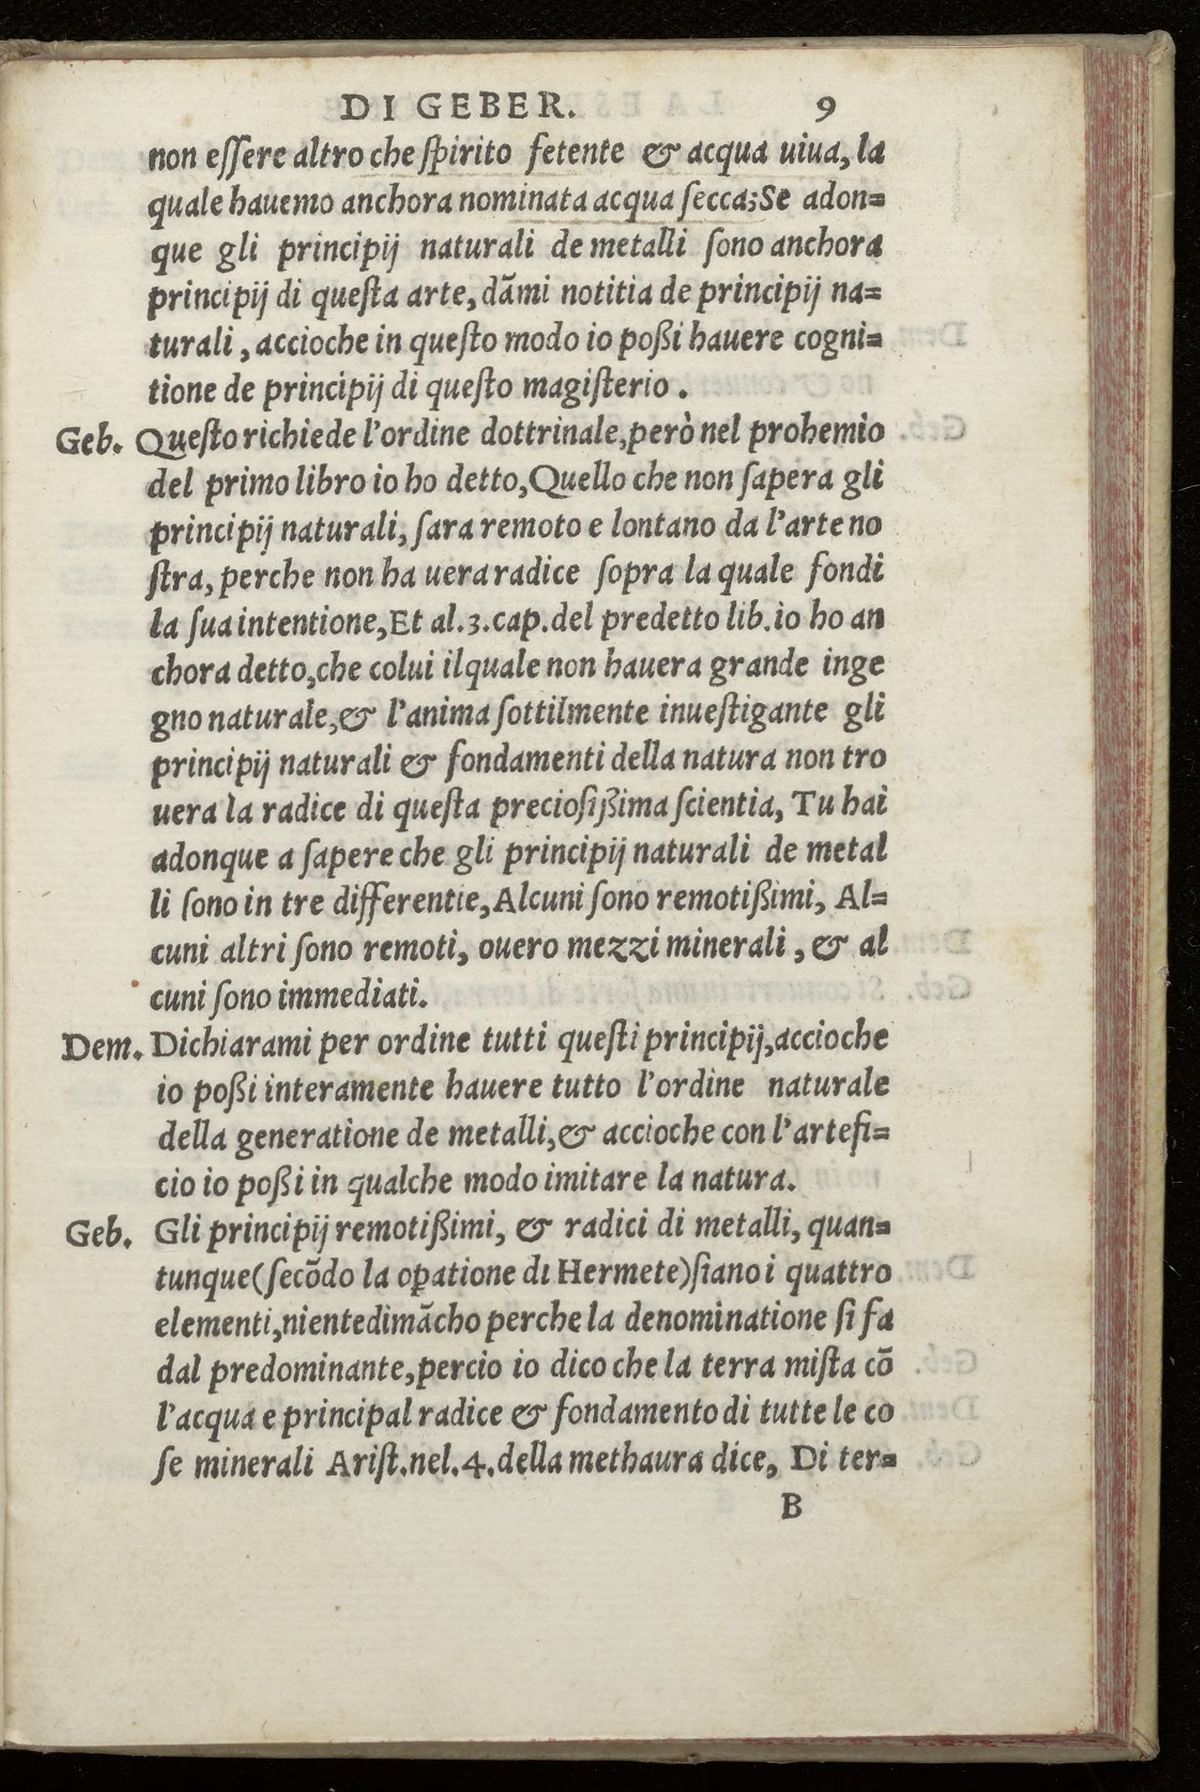 DI GEBER. 9
non eſſere altro che ſpirito fetente & acqua uiua, la
quale hauemo anchora nominata acqua ſecca; Se adon=
que gli principij naturali de metalli ſono anchora
principij di queſta arte, dāmi notitia de principij na=
turali, accioche in queſto modo io poßi hauere cogni=
tione de principij di queſto magiſterio.
Geb. Queſto richiede l'ordine dottrinale, però nel prohemio
del primo libro io ho detto, Quello che non ſapera gli
principij naturali, ſara remoto e lontano da l'arte no
ſtra, perche non ha uera radice ſopra la quale fondi
la ſua intentione, Et al.3.cap.del predetto lib.io ho an
chora detto, che colui il quale non hauera grande inge
gno naturale, & l'anima ſottilmente inueſtigante gli
principij naturali & fondamenti della natura non tro
uera la radice di queſta precioſißima ſcientia, Tu hai
adonque a ſapere che gli principij naturali de metal
li ſono in tre differentie, Alcuni ſono remotißimi, Al=
cuni altri ſono remoti, ouero mezzi minerali, & al
cuni ſono immediati.
Dem. Dichiarami per ordine tutti queſti principij, accioche
io poßi interamente hauere tutto l'ordine naturale
della generatione de metalli, & accioche con l'artefi=
cio io poßi in qualche modo imitare la natura.
Geb. Gli principij remotißimi, & radici di metalli, quan=
tunque (ſecōdo la oꝑatione di Hermete) ſiano i quattro
elementi, nientedimācho perche la denominatione ſi fa
dal predominante, percio io dico che la terra miſta cō
l'acqua e principal radice & fondamento di tutte le co
ſe minerali Ariſt.nel.4.della methaura dice, Di ter=
B